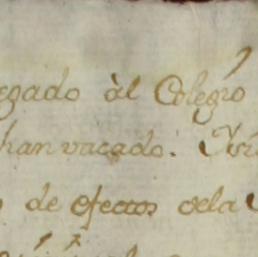 egado àl Colegio
han vacado.
de efectos dela